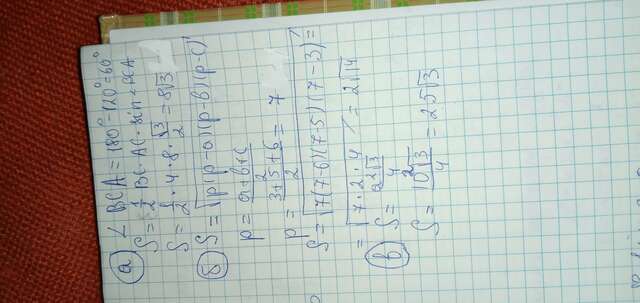 а) ∠ BCA = 180° - 120° = 60°
S = 1/2 BC · AC · sin ∠BCA
S = 1/2 · 4 · 8 · √3/2 = 8√3
б) S = √p(p-a)(p-b)(p-c)
p = a+b+c/2
p = 3+5+6/2 = 7
S = √7(7-6)(7-5)(7-3) =
= √7·2·4 = 2√14
в) S = a²√3/4
S = 10²√3/4 = 25√3